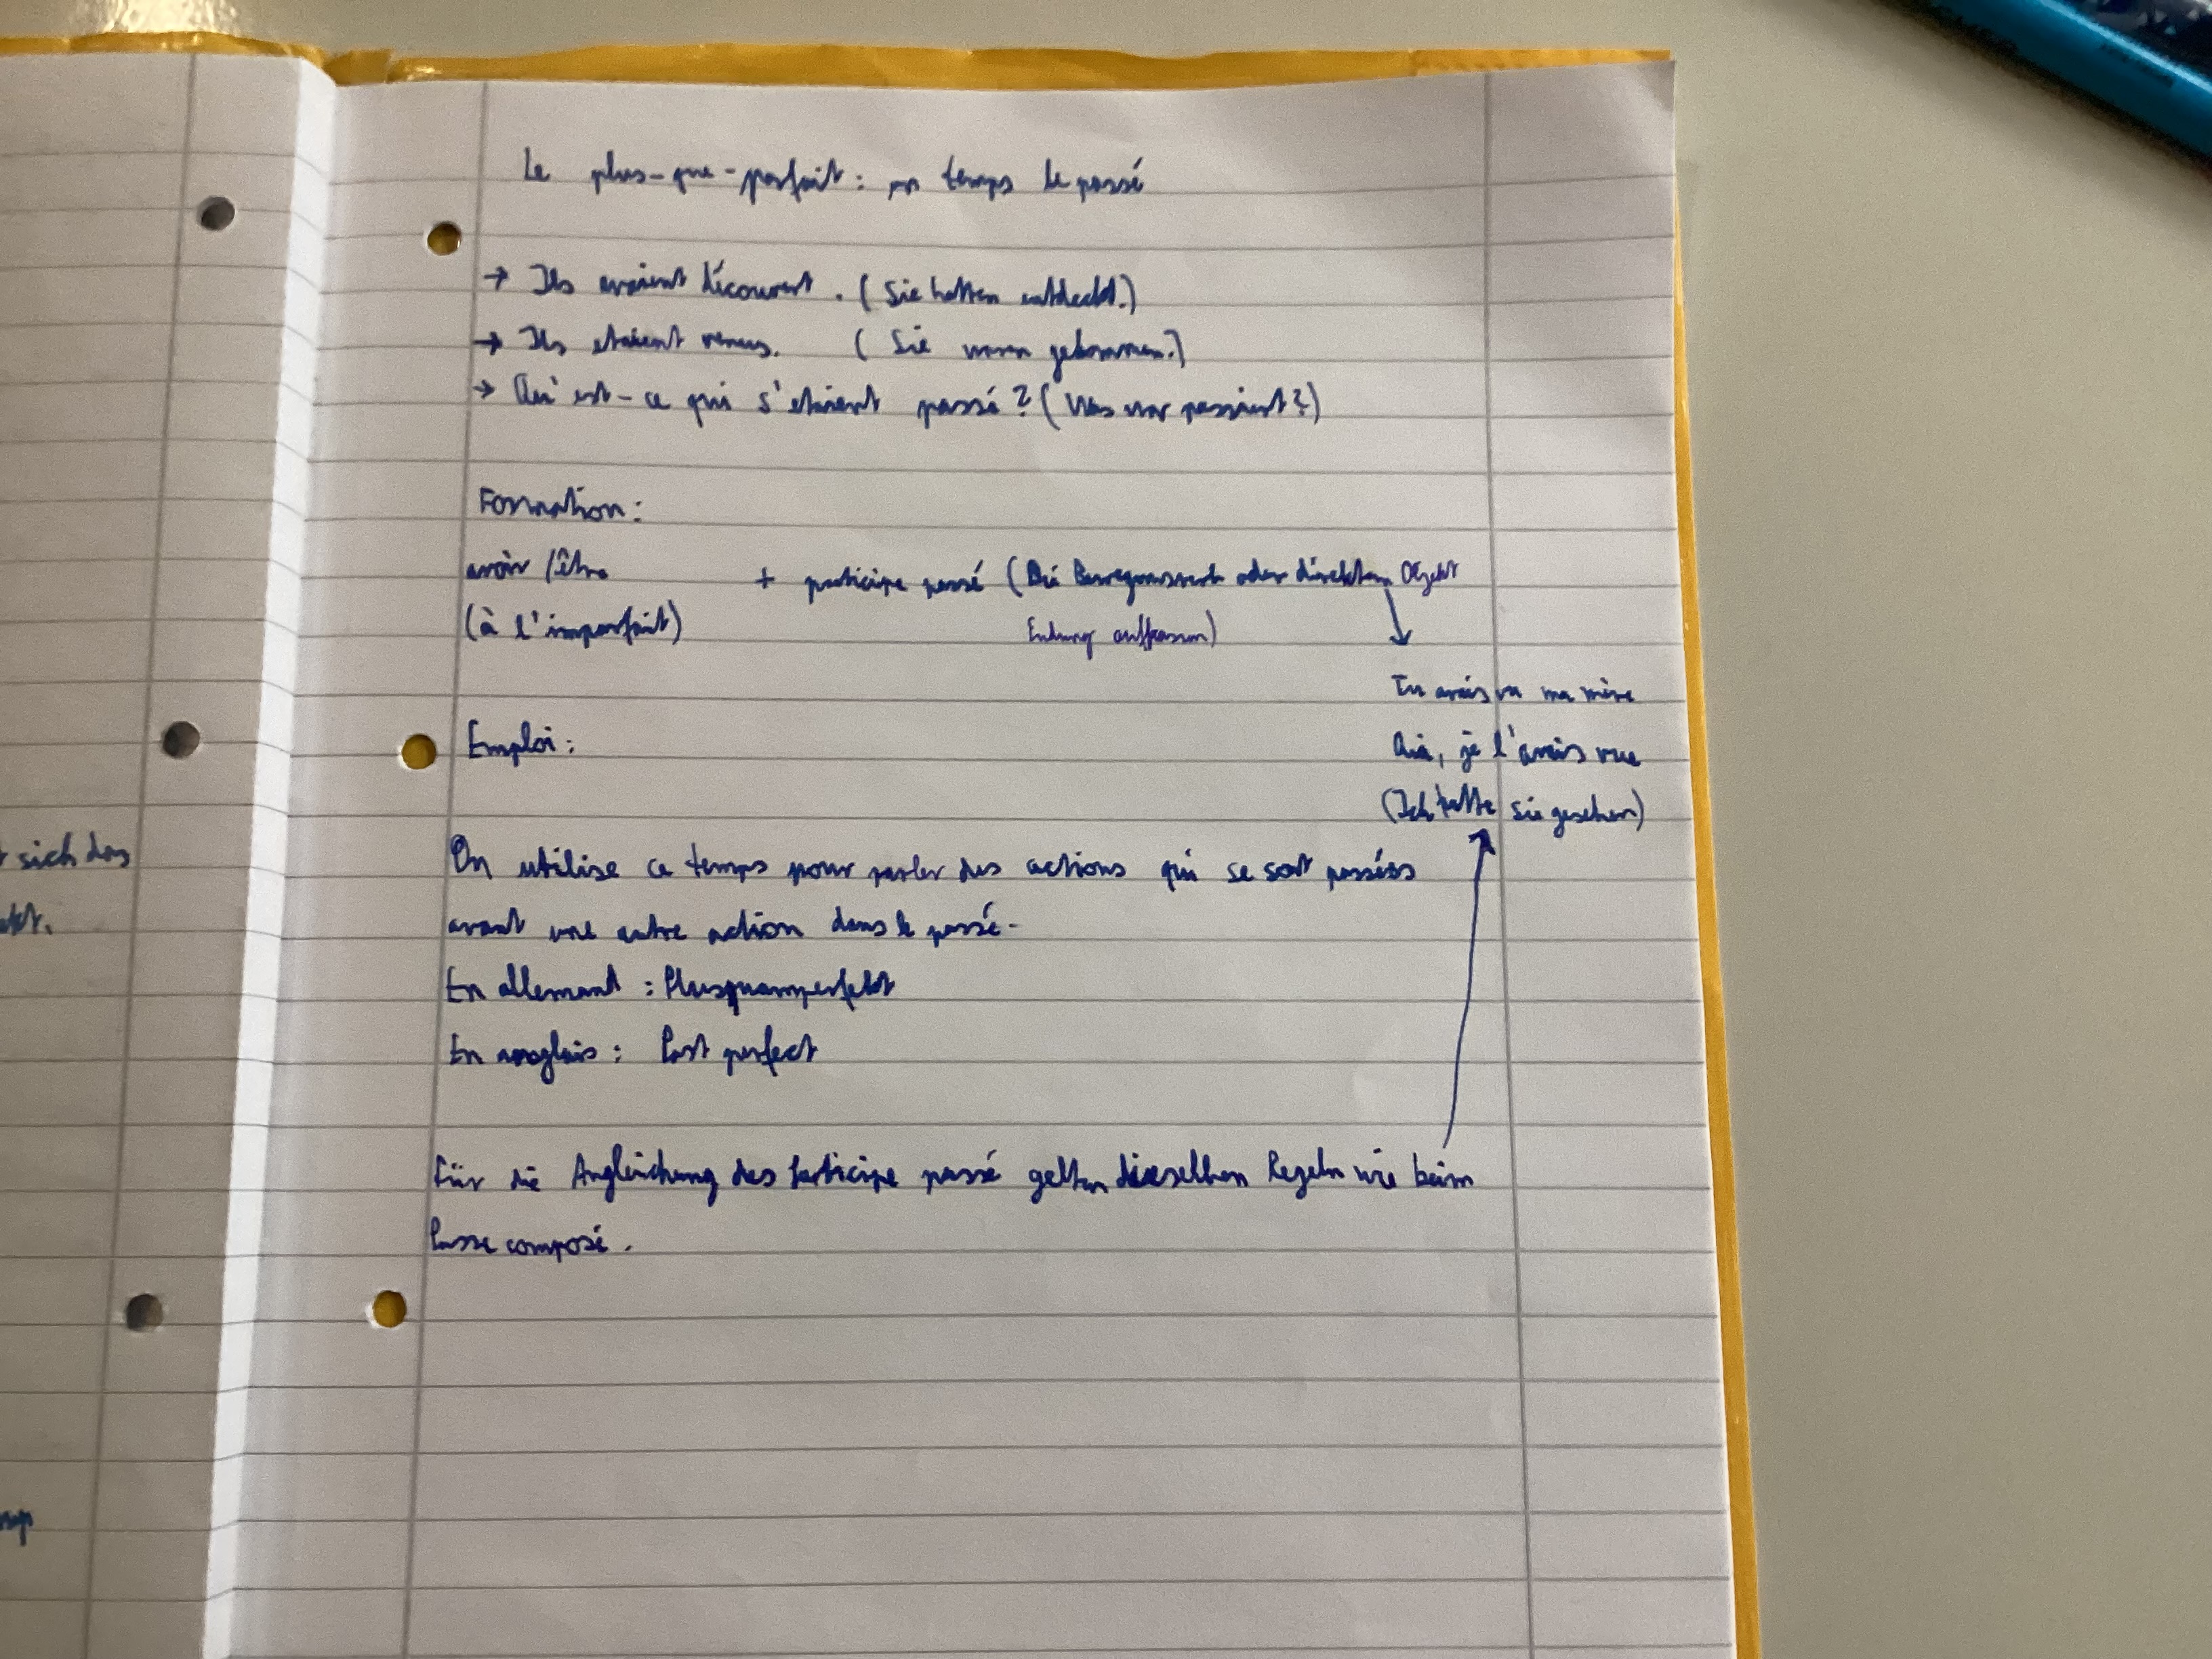 Le plus-que-parfait : un temps de passé
→ Ils avaient découvert . ( Sie hatten entdeckt.)
→ Ils etaient venus. ( Sie waren gekommen.)
→ Qu'est-ce qui s'etaient passé ? ( Was war passiert?)
Formation :
avoir / être + participe passé ( Bei oder direktem Objekt
(à l'imparfait) Endung )
Tu avais vu ma mère
Emploi :
Oui, je l'avais vue
(Ich hatte sie gesehen)
On utilise ce temps pour parler des actions qui se sont passées
avant une autre action dans le passé.
En allemand : Plusquamperfekt
En anglais : Past perfect
Für die Angleichung des Participe passé gelten dieselben Regeln wie beim
Passe composé .
sich das